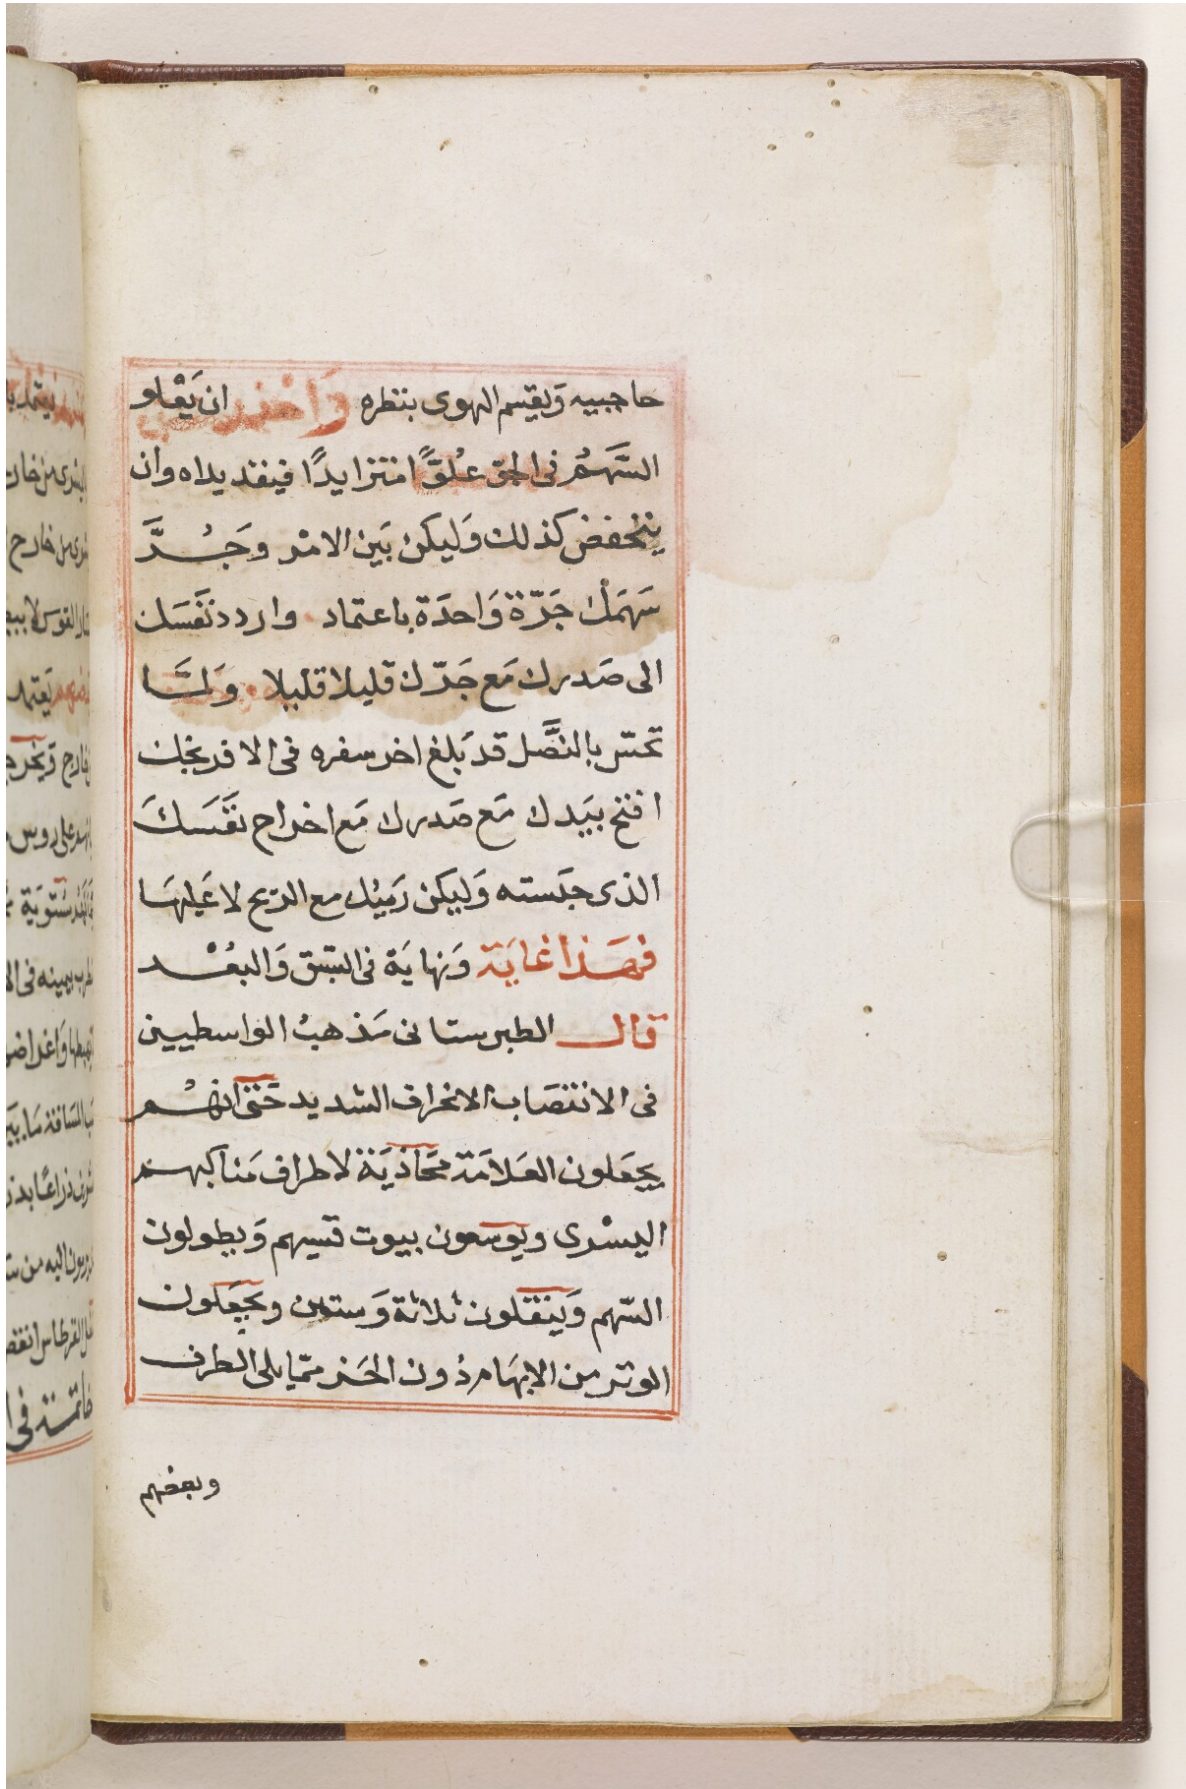 حاجبيه وَيقيم الهوى بنظره وَاحْذر ان يَعْلو
السَّهمُ فى الجوّ عُلوًّا متزايدًا فينفد يداه وان
ينخفض كذلك وَليكن بَين الامْر وجُــرَّ
سَهمَك جَرّة وَاحدَة باعتماد واردد نَفَسَك
الى صَدرك مَع جَرّك قليلا قليلا ولمَّــا
تحسّ بالنَّصل قد بَلغ اخر سفره فى الا فريجك
افتح بيَدك مَع صَدرك مَع اخراج نفَسَكَ
الذى حبَسته وَليكن رَميُك مع الريح لا عَليهَا
فهَذا غايَة وَنهايَة فى السّبق وَالبُعْــد
قال الطبرستانى مَذهبُ الواسطيين
فى الانتصَاب الانحراف الشديد حَتى انهُــم
يجعَلون العَلامَة محَاذيَة لاطراف مَناكبهــم
اليسْرى ويوسعون بيوت قسيهم وَيطولون
السّهم وَينقلون ثلاثة وَستين ويجعَلون
الوتر من الابهَام دُون الحَز ممّا يلى الطرف
وبعضهم